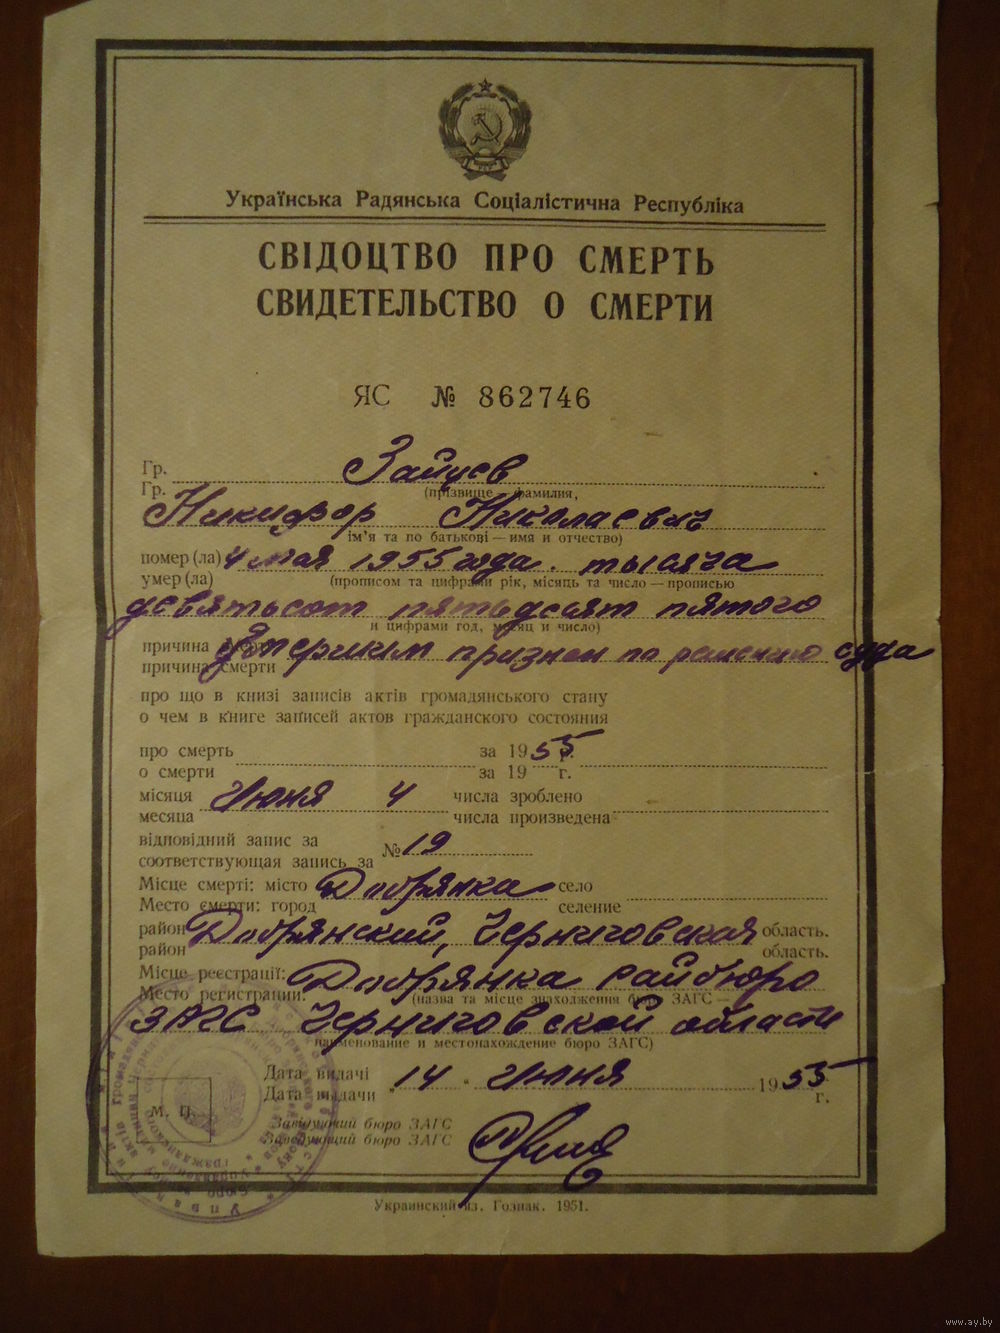 Українська Радянська Соціалістична Республіка
СВІДОЦТВО ПРО СМЕРТЬ
СВИДЕТЕЛЬСТВО О СМЕРТИ
ЯС № 862746
Гр. Зайцев
Гр. (прізвище — фамилия,
Никифор Николаевич
ім'я та по батькові — имя и отчество)
помер (ла) 4 мая 1955 года. тысяча
умер (ла) (прописом та цифрами рік, місяць та число — прописью
девятьсот пятьдесят пятого
и цифрами год, месяц и число)
причина смерті умершим признан по решению суда
причина смерти
про що в книзі записів актів громадянського стану
о чем в книге записей актов гражданского состояния
про смерть за 1955 р.
о смерти за 19 г.
місяця Июня 4 числа зроблено
месяца числа произведена
відповідний запис за № 19
соответствующая запись за
Місце смерті: місто Добрянка село
Место смерти: город селение
район Добрянский, Черниговская область.
район область.
Місце реєстрації: Добрянка райбюро
Место регистрации: (назва та місце знаходження бюро ЗАГС —
ЗАГС Черниговской области
наименование и местонахождение бюро ЗАГС)
Дата видачі „14 " Июня 1955
Дата выдачи г.
М. П.
Завідуючий бюро ЗАГС
Заведующий бюро ЗАГС
Украинский из. Гознак. 1951.
www.ay.by